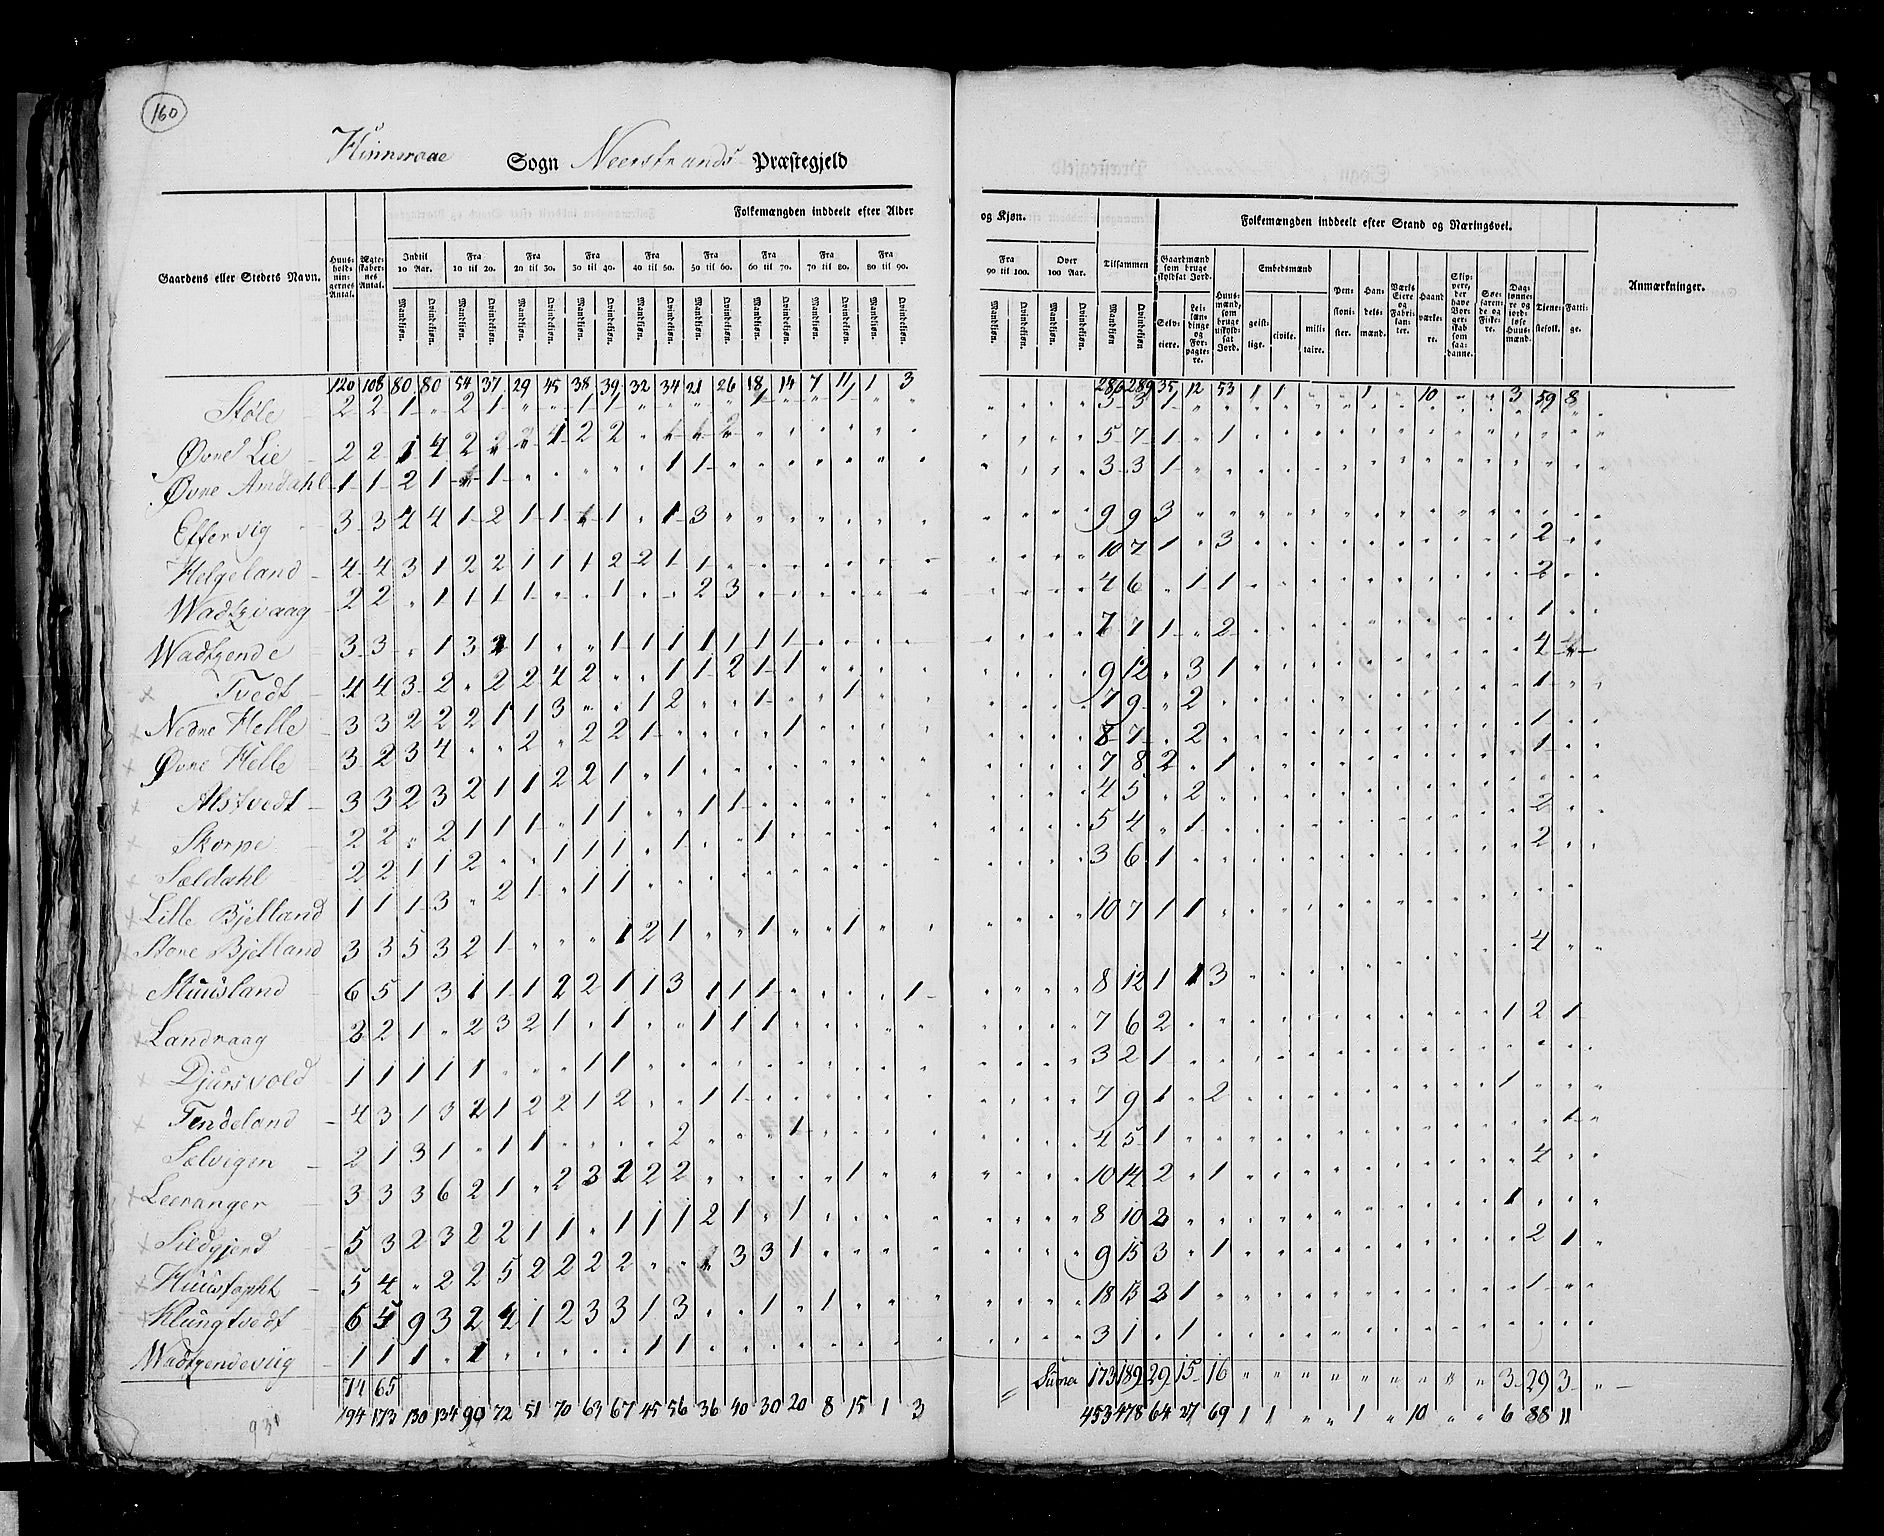 160
Sogn Neerstrands Præstegjeld
Gaardens eller Stedets Navn. Huusholdningernes Antal. Ægteskabernes Antal. Folkemængden inddeelt efter Alder
Indtil 10 Aar. Fra 10 til 20. Fra 20 til 30. Fra 30 til 40. Fra 40 til 50. Fra 50 til 60. Fra 60 til 70. Fra 70 til 80. Fra 80 til 90.
Mandkiøn. Qvindekiøn. Mandkiøn. Qvindekiøn. Mandkiøn. Qvindekiøn. Mandkiøn. Qvindekiøn. Mandkiøn. Qvindekiøn. Mandkiøn. Qvindekiøn. Mandkiøn. Qvindekiøn. Mandkiøn. Qvindekiøn. Mandkiøn. Qvindekiøn.
120 108 80 80 54 37 29 45 38 39 32 34 21 26 18 14 7 11 1 3
Støle 2 2 1 " 2 1 " " 1 1 " " " " 1 " " " " "
Øvre Lie 2 2 1 4 2
Øvre Amdahl 1 1 2 1 " 1 " " " " " 1 1 " " " " " " "
3 3 4 4 1 2 1 1 1 1 " 1 3 " " " " " " "
Helgeland 4 4 3 1 2 2 1 1 1 2 2 1 1 " " " " " " "
Wadtzvaag 2 2 " 1 1 1 1 " " 1 " " 2 3 " " " " " "
Wadtzende 3 3 " 1 3 2 1 " " 1 1 1 1 1 1 1 " " " "
Tvedt 4 4 3 2 " 2 2 4 2 " " 1 1 2 1 1 " " " "
Nedre Helle 3 3 2 2 2 1 1 3 " " 1 2 " " 1 " " 1 " "
Øvre Helle 3 2 3 4 " " 2 " 2 2 1 " " " " 1 " " " "
Alstvedt 3 3 2 3 2 1 1 2 2 1 " 1 " " " " " " " "
Skorpe 2 2 " 2 1 1 1 " 1 1 " " 1 1 " " " " " "
Sældahl 2 2 1 1 2 " " 1 1 1 " 1 " " 1 " " " " "
Lille Bjelland 1 1 1 3 " 2 1 " 1 1 " " " " " " " " " "
Store Bjelland 3 3 5 3 2 1 " " " 1 2 1 " " 1 " " 1 " "
Muusland 6 5 1 3 1 1 1 2 2 1 1 3 1 1 1 " " " " 1
Landvaag 2 2 1 " 2 3 2 1 " 1 " " 1 1 1 " " " " "
Djursvold 1 1 1 1 1 " " " 1 1 " " " " " " " " " "
Tendeland 4 3 1 3 2 1 2 2 1 2 " " 1 1 " " " " " "
Sælvigen 2 1 3 1 " 1 1 " " " " 2 " " " 1 " " " "
Leeranger 3 3 3 6 2 1 " 2 3 2 2 2 " " " " " 1 " "
Sildgjerd 5 3 2 3 2 2 1 1 " 1 1 1 2 1 " 1 " " " "
5 4 " 2 2 5 2 2 2 2 " " " 3 3 1 " " " "
Klungtvedt 6 5 9 3 2 4 1 2 3 3 1 3 " " 1 " 1 " " "
Wadtzendeviig 1 1 1 " 1 " " " " " 1 1 " " " " " " " "
74 65
194 173 130 134 90 72 51 70 63 67 45 56 36 40 30 20 8 15 1 3
931
og Kjøn. Tilsammen Folkemængden inddeelt efter Stand og Næringsvei. Anmærkninger.
Fra 90 til 100. Over 100 Aar.
Mandkiøn. Qvindekiøn. Mandkiøn. Qvindekiøn. Mandkiøn Qvindekiøn.
Gaardmænd som bruge skyldsat Jord. Selveiere. Leilændinge og Forpagtere.
Huusmænd, som bruge uskyldsat Jord.
Embedsmænd geistlige. civile. militaire.
Pensionister. Handelsmænd. Værks Eiere og Fabrikanter. Haandværkere.
Skippere, der have Borgerskab som saadanne.
Søefarende og Fiskere. Daglønnere og jordløse Huusmænd. Tienestefolk. Fattige.
286 289 35 12 53 1 1 " " 1 " 10 " " 3 59 8
3 3 1
5 7 1 " 1
3 3 1
9 9 3
10 7 1 " 3 2
4 6 " 1 1 2
7 7 1 " 2 1
9 12 " 3 1 4
7 9 " 2 1
8 7 " 2 1
7 8 2 " 1 1
4 5 " 2
5 4 " 1 2
3 6 1 2
10 7 1 1
8 12 1 1 3 4
7 6 2 1 2 1
3 2 1
7 9 1 " 2 1
4 5 1 1
10 14 2 " 1 4
8 10 3 1
9 15 3 " 1 2 1
18 13 3 1 1
3 1 " 1
Suma 173 189 29 15 16 " " " " " " " " " 3 29 3 "
453 478 64 27 69 1 1 " " 1 " 10 " " 6 88 11